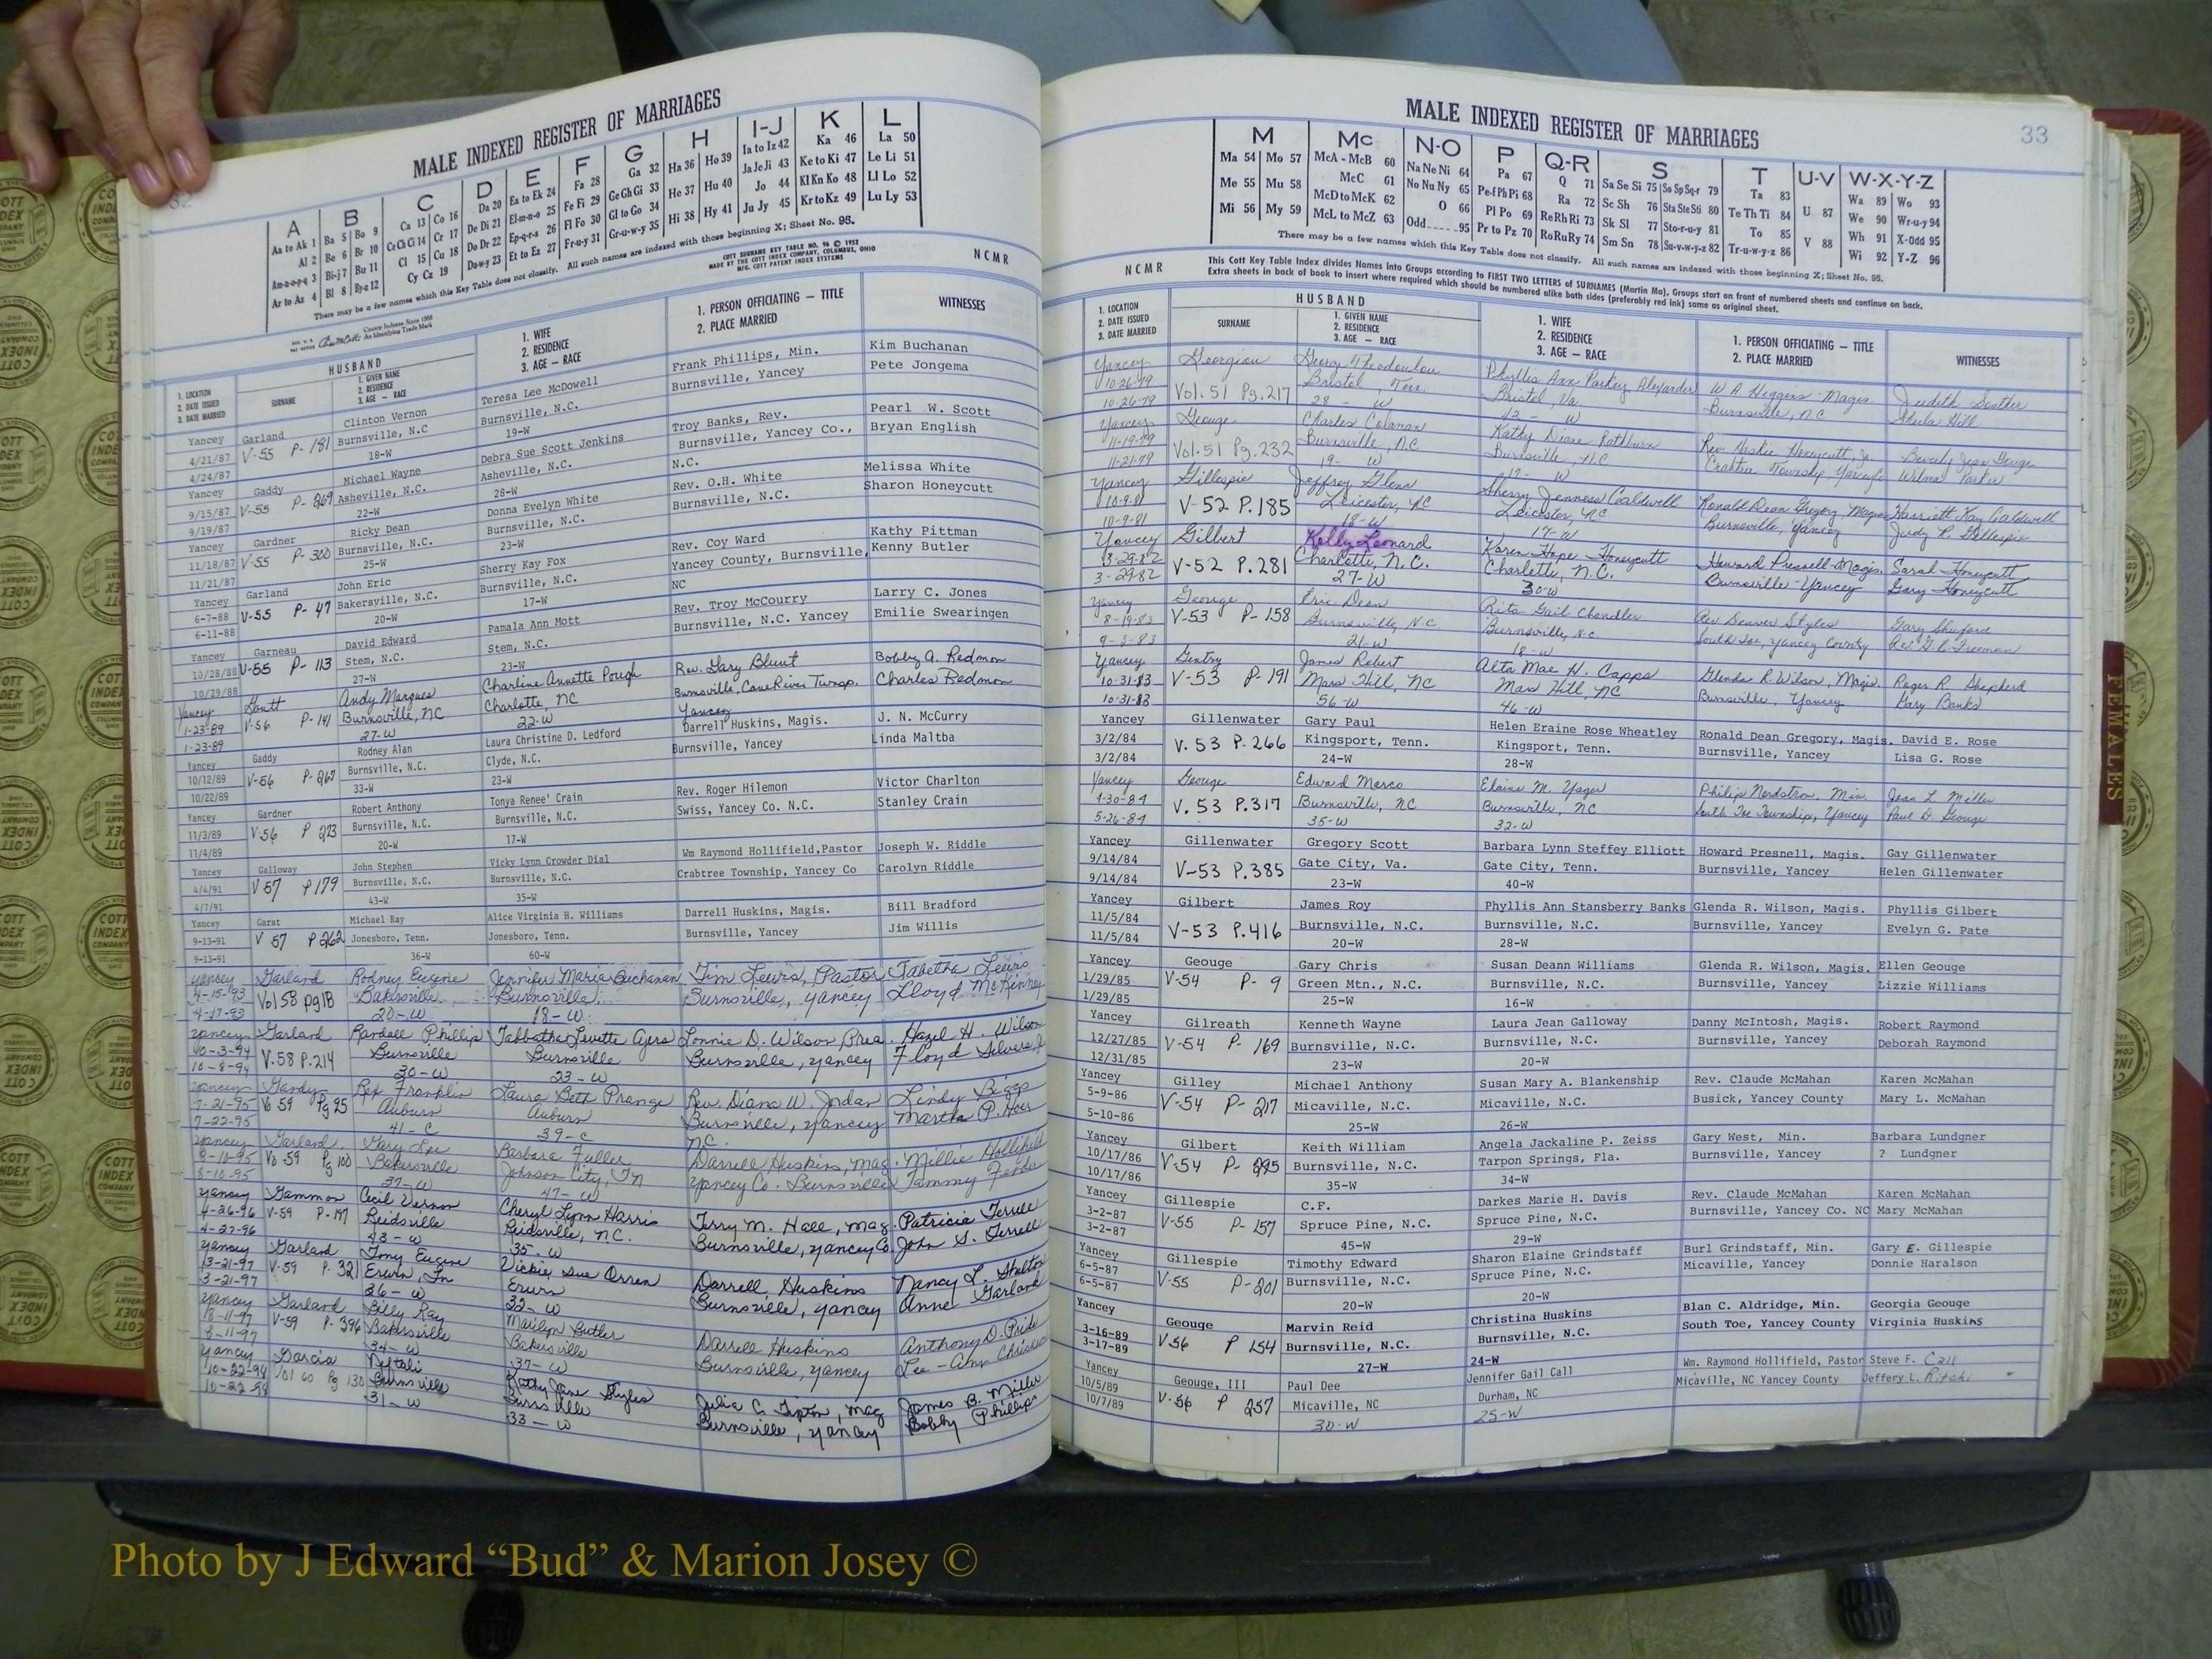 MALE INDEXED REGISTER OF MARRIAGES
A B C D E F G H I-J K L
Aa to Ak 1 Ba 5 Bo 9 Ca 13 Co 16 Da 20 Ea to Ek 24 Fa 28 Ga 32 Ha 36 Ho 39 Ia to Iz 42 Ka 46 La 50
Al 2 Be 6 Br 10 Ce Ch Ci 14 Cr 17 De Di 21 El-m-n-o 25 Fe Fi 29 Ge Gh Gi 33 He 37 Hu 40 Ja Je Ji 43 Ke to Ki 47 Le Li 51
Am-n-o-p-q 3 Bi-j 7 Bu 11 Cl 15 Cu 18 Do Dr 22 Ep-q-r-s 26 Fl Fo 30 Gl to Go 34 Hi 38 Hy 41 Jo 44 Kl Kn Ko 48 Ll Lo 52
Ar to Az 4 Bl 8 By-z 12 Cy Cz 19 Du-w-y 23 Et to Ez 27 Fr-u-y 31 Gr-u-w-y 35 Ju Jy 45 Kr to Kz 49 Lu Ly 53
There may be a few names which this Key Table does not classify. All such names are indexed with those beginning X; Sheet No. 95.
COTT SURNAME KEY TABLE NO. 96 © 1952
MADE BY THE COTT INDEX COMPANY, COLUMBUS, OHIO
MFG. COTT PATENT INDEX SYSTEMS
NCMR
County Indexes Since 1888
An Identifying Trade Mark
HUSBAND
1. LOCATION
2. DATE ISSUED
3. DATE MARRIED
SURNAME
1. GIVEN NAME
2. RESIDENCE
3. AGE — RACE
1. WIFE
2. RESIDENCE
3. AGE — RACE
1. PERSON OFFICIATING — TITLE
2. PLACE MARRIED
WITNESSES
Yancey Garland Clinton Vernon Teresa Lee McDowell Frank Phillips, Min. Kim Buchanan
4/21/87 V-55 P-181 Burnsville, N.C Burnsville, N.C. Burnsville, Yancey Pete Jongema
4/24/87 18-W 19-W
Yancey Gaddy Michael Wayne Debra Sue Scott Jenkins Troy Banks, Rev. Pearl W. Scott
9/15/87 V-55 P-269 Asheville, N.C. Asheville, N.C. Burnsville, Yancey Co., N.C. Bryan English
9/19/87 22-W 28-W
Yancey Gardner Ricky Dean Donna Evelyn White Rev. O.H. White Melissa White
11/18/87 V-55 P-300 Burnsville, N.C. Burnsville, N.C. Burnsville, N.C. Sharon Honeycutt
11/21/87 25-W 23-W
Yancey Garland John Eric Sherry Kay Fox Rev. Coy Ward Kathy Pittman
6-7-88 V-55 P-47 Bakersville, N.C. Burnsville, N.C. Yancey County, Burnsville, NC Kenny Butler
6-11-88 20-W 17-W
Yancey Garneau David Edward Pamala Ann Mott Rev. Troy McCourry Larry C. Jones
10/28/88 V-55 P-113 Stem, N.C. Stem, N.C. Burnsville, N.C. Yancey Emilie Swearingen
10/29/88 27-W 23-W
Yancey Andy Marques Charline Annette Pough Rev. Gary Blunt Bobby A. Redmon
1-23-89 V-56 P-141 Burnsville, NC Charlotte, NC Burnsville, Cane River Twnsp. Yancey Charles Redmon
1-23-89 27-W 22-W
Yancey Gaddy Rodney Alan Laura Christine D. Ledford Darrell Huskins, Magis. J. N. McCurry
10/12/89 V-56 P-267 Burnsville, N.C. Clyde, N.C. Burnsville, Yancey Linda Maltba
10/22/89 33-W 23-W
Yancey Gardner Robert Anthony Tonya Renee' Crain Rev. Roger Hilemon Victor Charlton
11/3/89 V-56 P Burnsville, N.C. Burnsville, N.C. Swiss, Yancey Co. N.C. Stanley Crain
11/4/89 20-W 17-W
Yancey Galloway John Stephen Vicky Lynn Crowder Dial Wm Raymond Hollifield,Pastor Joseph W. Riddle
4/4/91 V 57 P 179 Burnsville, N.C. Burnsville, N.C. Crabtree Township, Yancey Co Carolyn Riddle
4/7/91 43-W 35-W
Yancey Garst Michael Ray Alice Virginia H. Williams Darrell Huskins, Magis. Bill Bradford
9-13-91 V 57 P 262 Jonesboro, Tenn. Jonesboro, Tenn. Burnsville, Yancey Jim Willis
9-13-91 36-W 60-W
Yancey Garland Rodney Eugene Jennifer Maria Buchanan Tim Lewis, Pastor Tabetha Lewis
4-15-93 Vol 58 pg 18 Bakersville Burnsville Burnsville, Yancey Lloyd McKinney
4-17-93 20-W 18-W
Yancey Garland Randall Phillip Tabbatha Levette Ayers Lonnie D. Wilson, Prea. Hazel H. Wilson
10-3-94 V.58 P.214 Burnsville Burnsville Burnsville, Yancey Floyd Silvers
10-8-94 30-W 23-W
Yancey Gandy Rex Franklin Laura Beth Prange Rev. Diana W. Jordan Lindy Biggs
7-21-95 Vo 59 Pg 95 Auburn Auburn Burnsville, Yancey N.C. Martha P.
7-22-95 41-C 39-C
Yancey Garland Gary Lee Barbara Fuller Darrell Huskins, Mag. Millie Hollifield
8-10-95 Vo 59 Pg 100 Bakersville Johnson City, Tn Yancey Co. Burnsville Tammy
8-10-95 37-W 47-W
Yancey Gammon Cecil Vernon Cheryl Lynn Harris Terry M. Hall, Mag. Patricia Terrell
4-26-96 V-59 P-197 Reidsville Reidsville, N.C. Burnsville, Yancey Co John S. Terrell
4-27-96 43-W 35-W
Yancey Garland Tony Eugene Vickie Sue Orren Darrell Huskins Nancy L. Shelton
3-21-97 V-59 P-321 Erwin, Tn Erwin Burnsville, Yancey Anne Garland
3-21-97 36-W 32-W
Yancey Garland Billy Ray Marilyn Butler Darrell Huskins Anthony D. Pride
8-11-97 V-59 P-396 Bakersville Bakersville Burnsville, Yancey Lee-Ann
8-11-97 34-W 37-W
Yancey Garcia Neftali Kathy Jane Styles Julia C. Tipton, Mag James B. Miller
10-22-98 Vol 60 Pg 130 Burnsville Burnsville Burnsville, Yancey Bobby Phillips
10-22-98 31-W 33-W
MALE INDEXED REGISTER OF MARRIAGES
33
M Mc N-O P Q-R S T U-V W-X-Y-Z
Ma 54 Mo 57 McA - McB 60 Na Ne Ni 64 Pa 67 Q 71 Sa Se Si 75 So Sp Sq-r 79 Ta 83 U 87 Wa 89 Wo 93
Me 55 Mu 58 McC 61 No Nu Ny 65 Pe-f Ph Pi 68 Ra 72 Sc Sh 76 Sta Ste Sti 80 Te Th Ti 84 V 88 We 90 Wr-u-y 94
Mi 56 My 59 McD to McK 62 O 66 Pl Po 69 Re Rh Ri 73 Sk Sl 77 Sto-r-u-y 81 To 85 Wh 91 X-Odd 95
McL to McZ 63 Odd 95 Pr to Pz 70 Ro Ru Ry 74 Sm Sn 78 Su-v-w-y-z 82 Tr-u-w-y-z 86 Wi 92 Y-Z 96
There may be a few names which this Key Table does not classify. All such names are indexed with those beginning X; Sheet No. 95.
NCMR
This Cott Key Table Index divides Names into Groups according to FIRST TWO LETTERS of SURNAMES (Martin Ma), Groups start on front of numbered sheets and continue on back.
Extra sheets in back of book to insert where required which should be numbered alike both sides (preferably red ink) same as original sheet.
HUSBAND
1. LOCATION
2. DATE ISSUED
3. DATE MARRIED
SURNAME
1. GIVEN NAME
2. RESIDENCE
3. AGE — RACE
1. WIFE
2. RESIDENCE
3. AGE — RACE
1. PERSON OFFICIATING — TITLE
2. PLACE MARRIED
WITNESSES
Yancey Georgiou George Theodoulou Phyllis Ann Parkey Alexander W A Higgins Magis Judith Souther
10-26-79 Vol. 51 Pg. 217 Bristol, Tenn. Bristol, Va. Burnsville, N.C Sheila Hill
10-26-79 28 - W 42 - W
Yancey Geouge Charles Colanan Kathy Diane Rathburn Rev. Honeycutt, Jr. Beverly Jean Geouge
11-19-79 Vol. 51 Pg. 232 Burnsville, N.C Burnsville, N.C Crabtree Township, Yancey Co Wilma
11-21-79 19- W W
Yancey Gillespie Jeffrey Glenn Sherry Jenness Caldwell Ronald Dean Gregory, Magis Harriett Kay Caldwell
10-9-81 V-52 P.185 Leicester, NC Leicester, NC Burnsville, Yancey Judy R. Gillespie
10-9-81 18-W 17-W
Yancey Gilbert Kelly Leonard Karen Hope Honeycutt Howard Presnell-Magis. Sarah Honeycutt
3-29-82 V-52 P.281 Charlotte, N.C. Charlotte, N.C. Burnsville-Yancey Gary Honeycutt
3-29-82 27-W 30-W
Yancey Geouge Eric Dean Rita Gail Chandler Rev Denver Styles Gary Shuford
8-19-83 V-53 P-158 Burnsville, N.C. Burnsville, N.C. South Toe, Yancey County Freeman
9-3-83 21-W 18-W
Yancey Gentry James Robert Alta Mae H. Capps Glenda R. Wilson, Magis. Roger R. Shepherd
10-31-83 V-53 P-191 Mars Hill, NC Mars Hill, NC Burnsville, Yancey Gary Banks
10-31-83 56-W 46-W
Yancey Gillenwater Gary Paul Helen Eraine Rose Wheatley Ronald Dean Gregory, Magis. David E. Rose
3/2/84 V. 53 P-266 Kingsport, Tenn. Kingsport, Tenn. Burnsville, Yancey Lisa G. Rose
3/2/84 24-W 28-W
Yancey Geouge Edward Marco Elaine M. Yager Philip Nordstrom, Min. Joan L. Miller
4-30-84 V. 53 P.317 Burnsville, NC Burnsville, NC South Toe Township, Yancey Paul D. Geouge
5-26-84 35-W 32-W
Yancey Gillenwater Gregory Scott Barbara Lynn Steffey Elliott Howard Presnell, Magis. Gay Gillenwater
9/14/84 V-53 P.385 Gate City, Va. Gate City, Tenn. Burnsville, Yancey Helen Gillenwater
9/14/84 23-W 40-W
Yancey Gilbert James Roy Phyllis Ann Stansberry Banks Glenda R. Wilson, Magis. Phyllis Gilbert
11/5/84 V-53 P.416 Burnsville, N.C. Burnsville, N.C. Burnsville, Yancey Evelyn G. Pate
11/5/84 20-W 28-W
Yancey Geouge Gary Chris Susan Deann Williams Glenda R. Wilson, Magis. Ellen Geouge
1/29/85 V-54 P- 9 Green Mtn., N.C. Burnsville, N.C. Burnsville, Yancey Lizzie Williams
1/29/85 25-W 16-W
Yancey Gilreath Kenneth Wayne Laura Jean Galloway Danny McIntosh, Magis. Robert Raymond
12/27/85 V-54 P- 169 Burnsville, N.C. Burnsville, N.C. Burnsville, Yancey Deborah Raymond
12/31/85 23-W 20-W
Yancey Gilley Michael Anthony Susan Mary A. Blankenship Rev. Claude McMahan Karen McMahan
5-9-86 V-54 P- 217 Micaville, N.C. Micaville, N.C. Busick, Yancey County Mary L. McMahan
5-10-86 25-W 26-W
Yancey Gilbert Keith William Angela Jackaline P. Zeiss Gary West, Min. Barbara Lundgner
10/17/86 V-54 P- 295 Burnsville, N.C. Tarpon Springs, Fla. Burnsville, Yancey ? Lundgner
10/17/86 35-W 34-W
Yancey Gillespie C.F. Darkes Marie H. Davis Rev. Claude McMahan Karen McMahan
3-2-87 V-55 P- 157 Spruce Pine, N.C. Spruce Pine, N.C. Burnsville, Yancey Co. NC Mary McMahan
3-2-87 45-W 29-W
Yancey Gillespie Timothy Edward Sharon Elaine Grindstaff Burl Grindstaff, Min. Gary E. Gillespie
6-5-87 V-55 P-201 Burnsville, N.C. Spruce Pine, N.C. Micaville, Yancey Donnie Haralson
6-5-87 20-W 20-W
Yancey Geouge Marvin Reid Christina Huskins Blan C. Aldridge, Min. Georgia Geouge
3-16-89 V56 P 154 Burnsville, N.C. Burnsville, N.C. South Toe, Yancey County Virginia Huskins
3-17-89 27-W 24-W
Yancey Geouge, III Paul Dee Jennifer Gail Call Wm. Raymond Hollifield, Pastor Steve F. Call
10/5/89 V-56 P 257 Micaville, NC Durham, NC Micaville, NC Yancey County Jeffery L.
10/7/89 30-W 25-W
FEMALES
Photo by J Edward “Bud” & Marion Josey ©